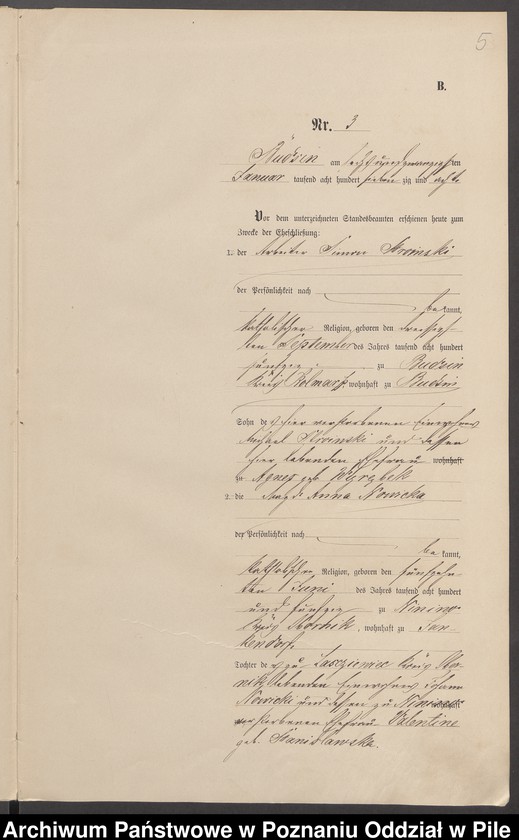 5
B.
Nr. 3
Budsin am sechsundzwanzigsten
Januar tausend acht hundert sieben zig und acht
Vor dem unterzeichneten Standesbeamten erschienen heute zum
Zwecke der Eheschließung:
1. der Arbeiter Simon
der Persönlichkeit nach
be kannt,
katholischer Religion, geboren den dreißig-
ten September des Jahres tausend acht hundert
fünfzig zu Budsin
Kreis Kolmar, wohnhaft zu Budsin
Sohn des hier verstorbenen Einwohners
Michael und dessen
hier lebenden Ehefrau wohnhaft
zu Agnes geb.
2. die Magd Anna Nowicka
der Persönlichkeit nach
be kannt,
katholischer Religion, geboren den fünfzehn-
ten Juni des Jahres tausend acht hundert
und fünfzig zu Ninino
Kreis Obornik, wohnhaft zu Jan-
kendorf
Tochter des zu Kreis Obor-
nik lebenden Einwohners Johann
Nowicki und dessen zu Ninino wohnhaft
verstorbenen Ehefrau Valentine
geb. Stanisławska.
Archiwum Państwowe w Poznaniu Oddział w Pile